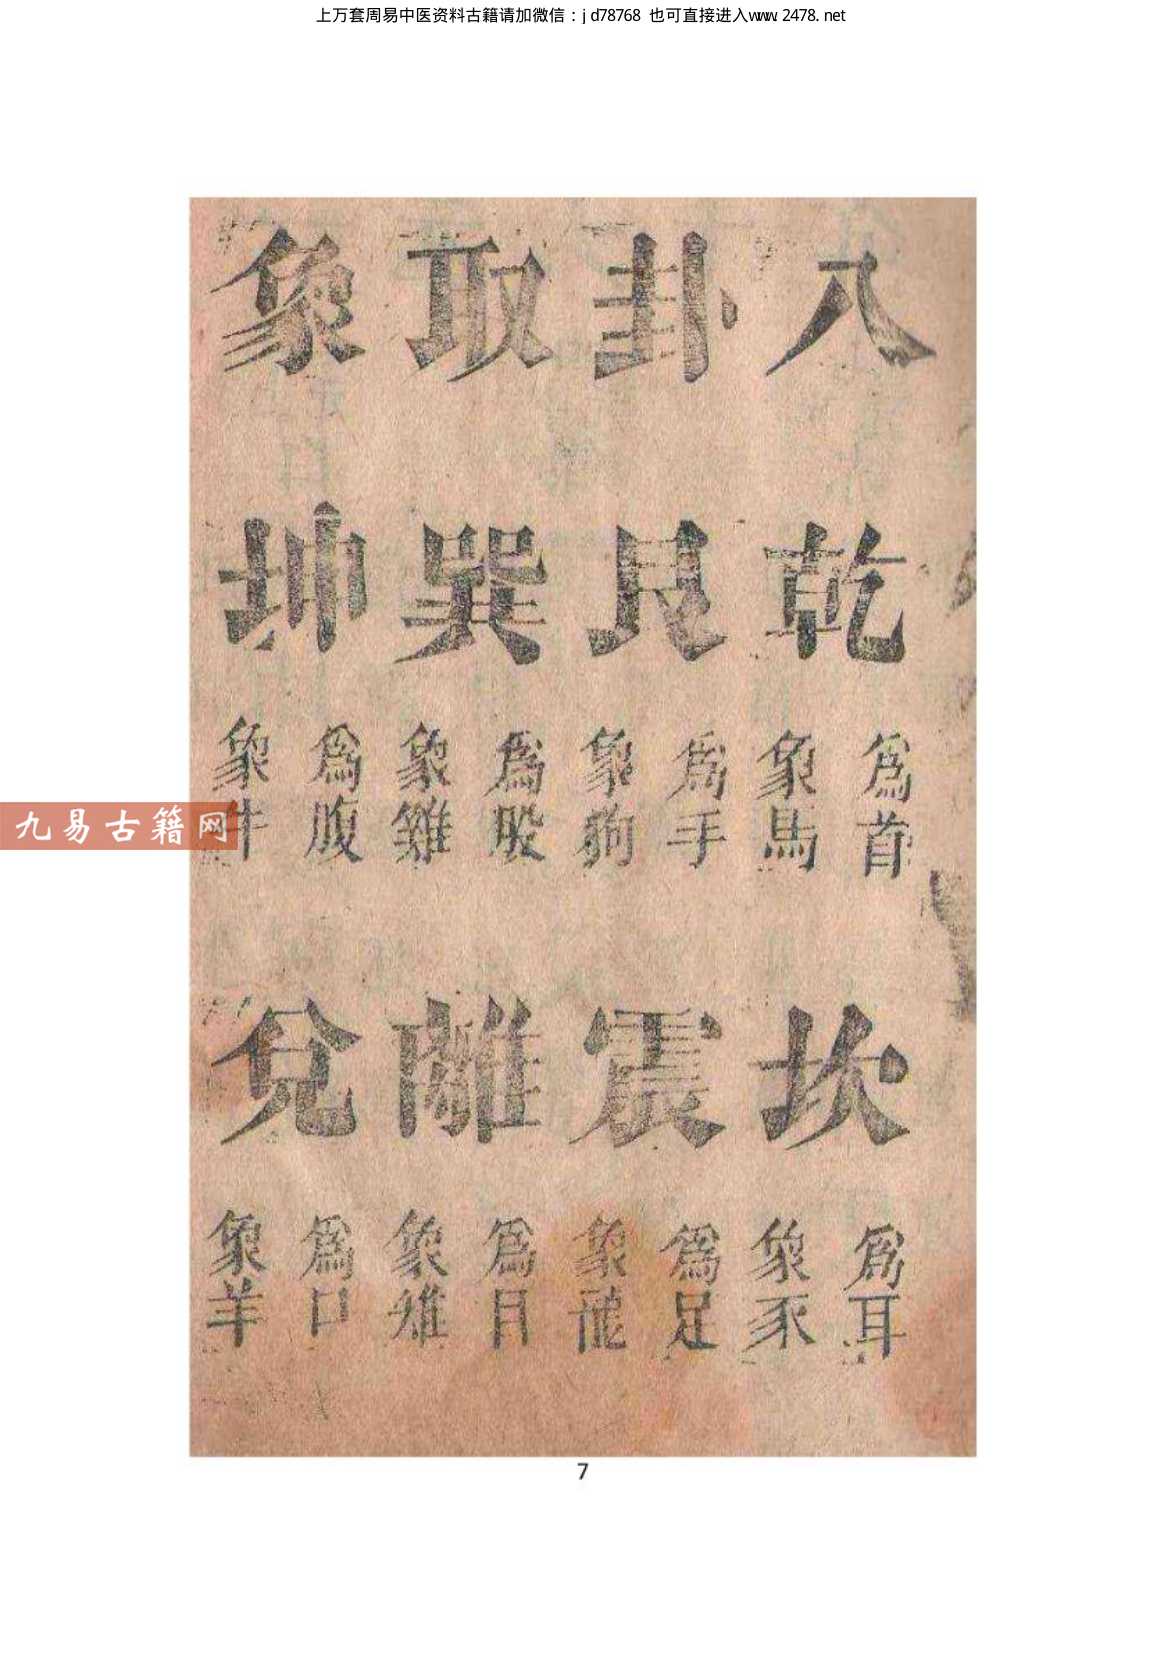 上万套周易中医资料古籍请加微信：jd78768 也可直接进入www.2478.net
八卦取象
乾
爲首
象馬
坎
爲耳
象豕
艮
爲手
象狗
震
爲足
象龍
巽
爲股
象雞
離
爲目
象雉
坤
爲腹
象牛
兌
爲口
象羊
九易古籍网
7